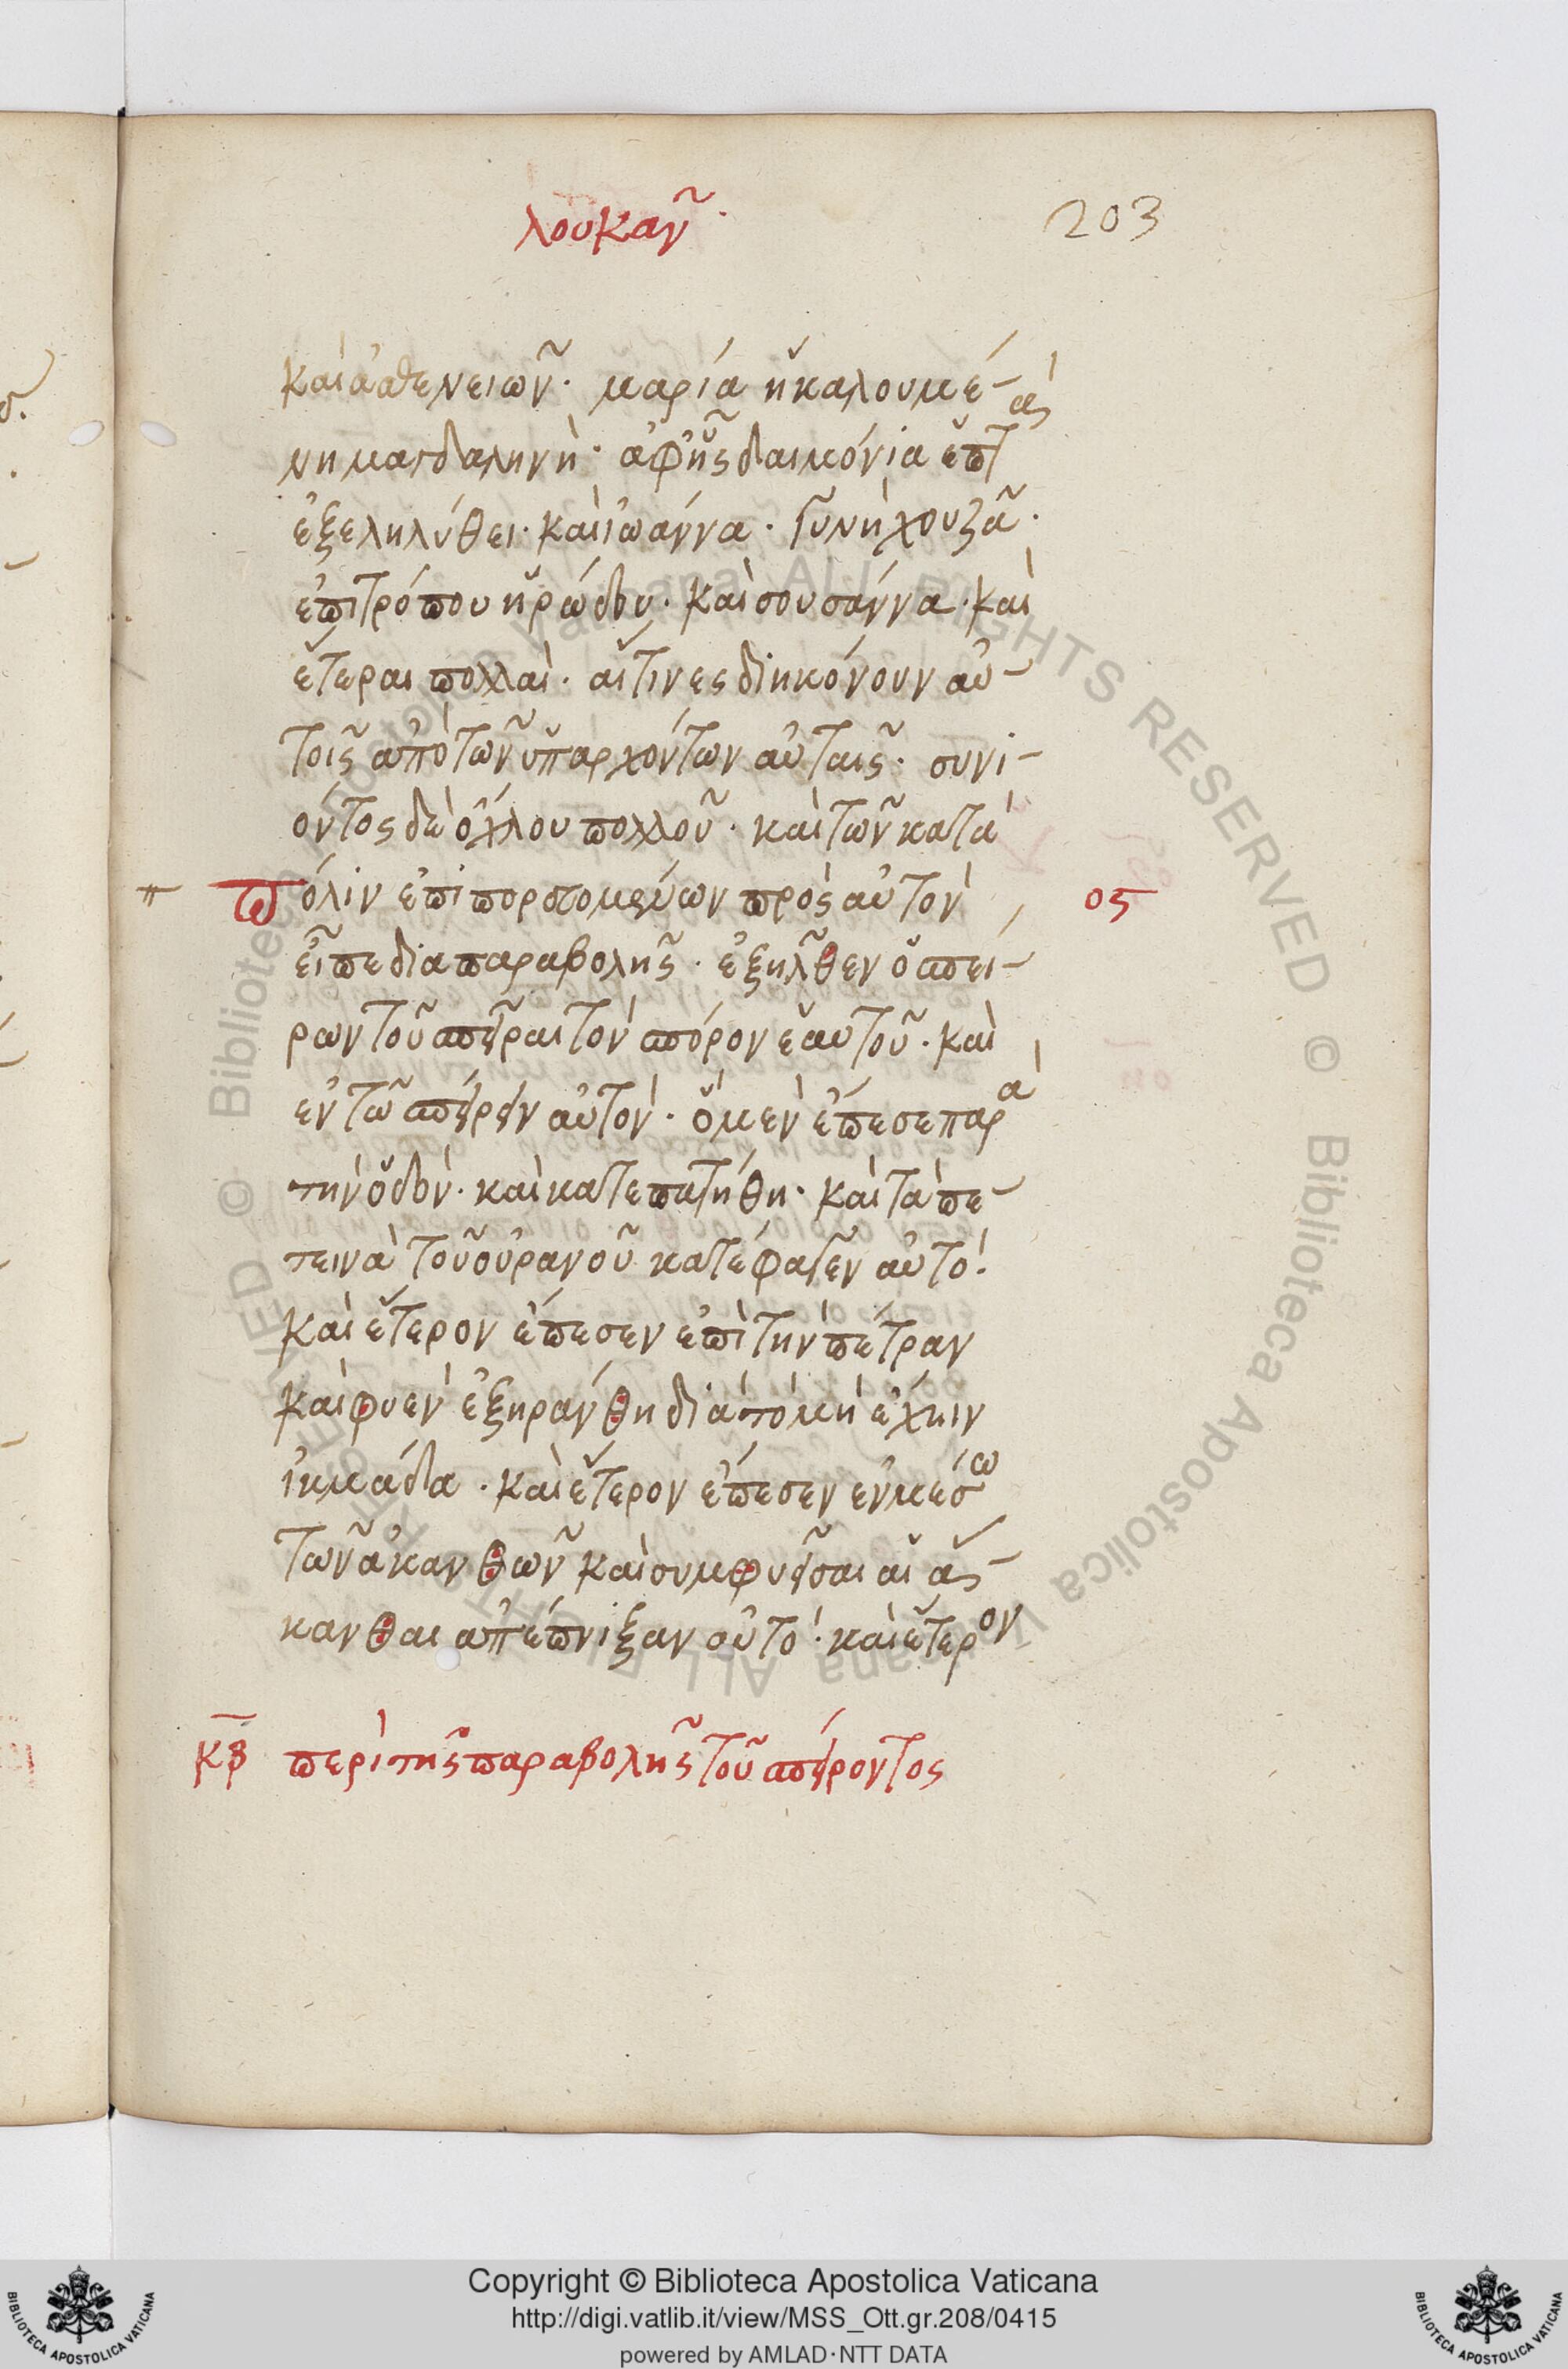 λουκᾶν
203
καὶ ἀσθενειῶν· μαρία ἡ καλουμέ-
νη μαγδαληνὴ· ἀφ ἧς δαιμόνια ἑπτὰ
ἐξεληλύθει· καὶ ἰωάννα· γυνὴ χουζᾶ·
ἐπιτρόπου ἡρώδου· καὶ σουσάννα· καὶ
ἕτεραι πολλαὶ· αἵτινες διηκόνουν αὐ-
τοῖς ἀπὸ τῶν ὑπαρχόντων αὐταῖς· συνι-
όντος δὲ ὄχλου πολλοῦ· καὶ τῶν κατὰ
πόλιν ἐπιπορευομένων πρὸς αὐτὸν
ος
εἶπε δια παραβολῆς· ἐξῆλθεν ὁ σπεί-
ρων τοῦ σπεῖραι τὸν σπόρον ἑαυτοῦ· καὶ
ἐν τῶ σπείρειν αὐτὸν· ὃ μὲν ἔπεσε παρὰ
τὴν ὁδὸν· καὶ κατεπατήθη· καὶ τὰ πε-
τεινὰ τοῦ οὐρανοῦ κατέφαγεν αὐτό·
καὶ ἕτερον ἔπεσεν ἐπὶ τὴν πέτραν
καὶ φυὲν ἐξηράνθη διὰ τὸ μὴ ἔχειν
ἰκμάδα· καὶ ἕτερον ἔπεσεν ἐν μέσω
τῶν ἀκανθῶν καὶ συμφυεῖσαι αἱ ἄ-
κανθαι ἀπέπνιξαν αὐτό· καὶ ἕτερον
κβ περὶ τῆς παραβολῆς τοῦ σπείροντος
Copyright © Biblioteca Apostolica Vaticana
http://digi.vatlib.it/view/MSS_Ott.gr.208/0415
powered by AMLAD·NTT DATA